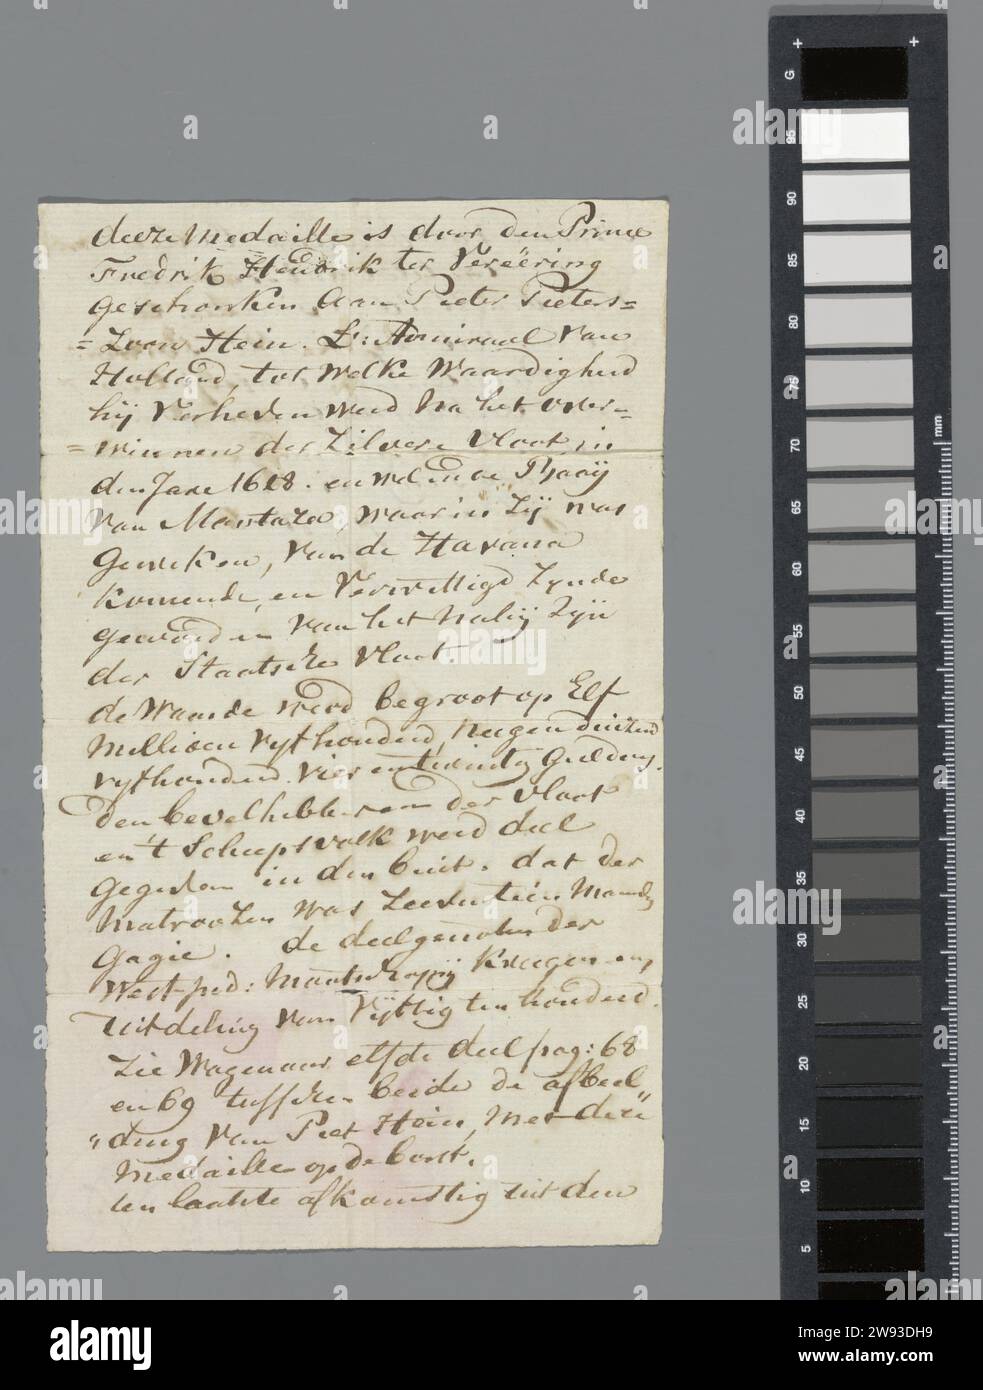 deeze Medaille is door den Prince
Fredrik Hendrik ter Vereëring
geschonken Aan Pieter Pieters=
=Zoon Hein. Lt: Admiraal van
Holland, tot welke waardigheid
hij Verheven werd na het over=
=winnen der Zilvere Vloot, in
den Jare 1628. en wel in de Baaij
van Mantaza, waar in Zij was
Geweken, van de Havana
komende, en Verwittigd Zynde
geworden van het nabij Zijn
der Staatsche Vloot.
de Waarde werd begroot op Elf
Millioen vyfhonderd, Neegenduizend
vyfhonderd vier entwintig Guldens.
den bevelhebberen der Vloot
en 't Scheepsvolk werd deel
Gegeeven in den buit. dat der
Matroozen was Zeeventein Maanden
Gagie. de deelgenoten der
West jnd: Maatschappij kreegen eene
uitdeling van Vijftig ten honderd.
Zie Wagenaar elfde deel pag: 68
en 69 tusschen beide de afbeel
"ding van Piet Hein, met deze"
Medaille op de borst.
ten laatste afkomstig uit den
G
95
90
85
80
75
70
65
60
55
50
45
40
35
30
25
20
15
10
5
mm
alamy
Image ID: 2W93DH9
www.alamy.com